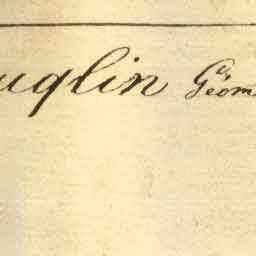 uglin Géom